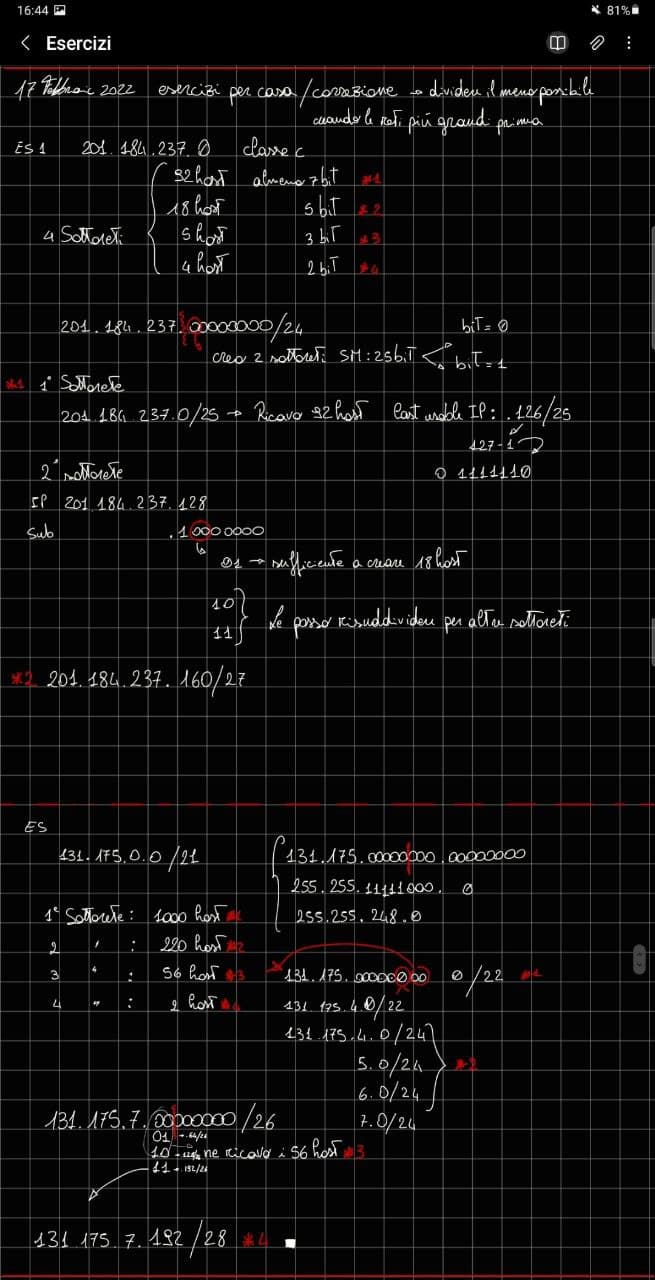 16:44
81%
Esercizi
17 Febbraio 2022 esercizi per casa/correzione → dividere il meno possibile
creando le reti più grandi prima
ES 1 201.184.237.0 classe c
92 host almeno 7 bit *1
18 host 5 bit *2
4 Sottoreti
5 host 3 bit *3
4 host 2 bit *4
201.184.237.00000000/24
bit = 0
creo 2 sottoreti SM: 25 bit
bit = 1
*1 1ª Sottorete
201.184.237.0/25 → Ricavo 92 host last usable IP: .126/25
127-1
0 1111110
2ª sottorete
IP 201.184.237.128
Sub .10000000
01 → sufficiente a creare 18 host
10
11
Le posso risuddividere per altre sottoreti
*2 201.184.237.160/27
ES
131.175.0.0/21
131.175.00000000.00000000
255.255.11111000.0
255.255.248.0
1ª Sottorete: 1000 host *1
2 " : 220 host *2
3 " : 56 host *3
4 " : 2 host *4
131.175.00000000 0/22 *1
131.175.4.0/22
131.175.4.0/24
5.0/24
6.0/24
7.0/24
*2
131.175.7.00000000/26
01 → .64/26
10 → .128/26 ne ricavo i 56 host *3
11 → .192/26
131.175.7.192/28 *4